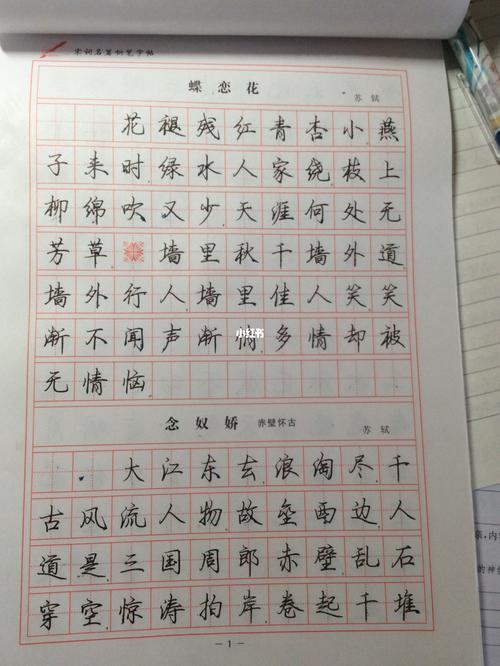 宋词名篇钢笔字帖
蝶恋花
苏轼
花褪残红青杏小燕
子来时绿水人家绕枝上
柳绵吹又少天涯何处无
芳草 墙里秋千墙外道
墙外行人墙里佳人笑笑
渐不闻声渐悄多情却被
无情恼
小红书
念奴娇 赤壁怀古
苏轼
大江东去浪淘尽千
古风流人物故垒西边人
道是三国周郎赤壁乱石
穿空惊涛拍岸卷起千堆
-1-